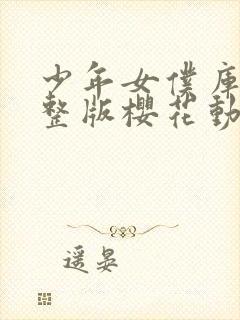 少年女僕庫
整版櫻花動
遥晏